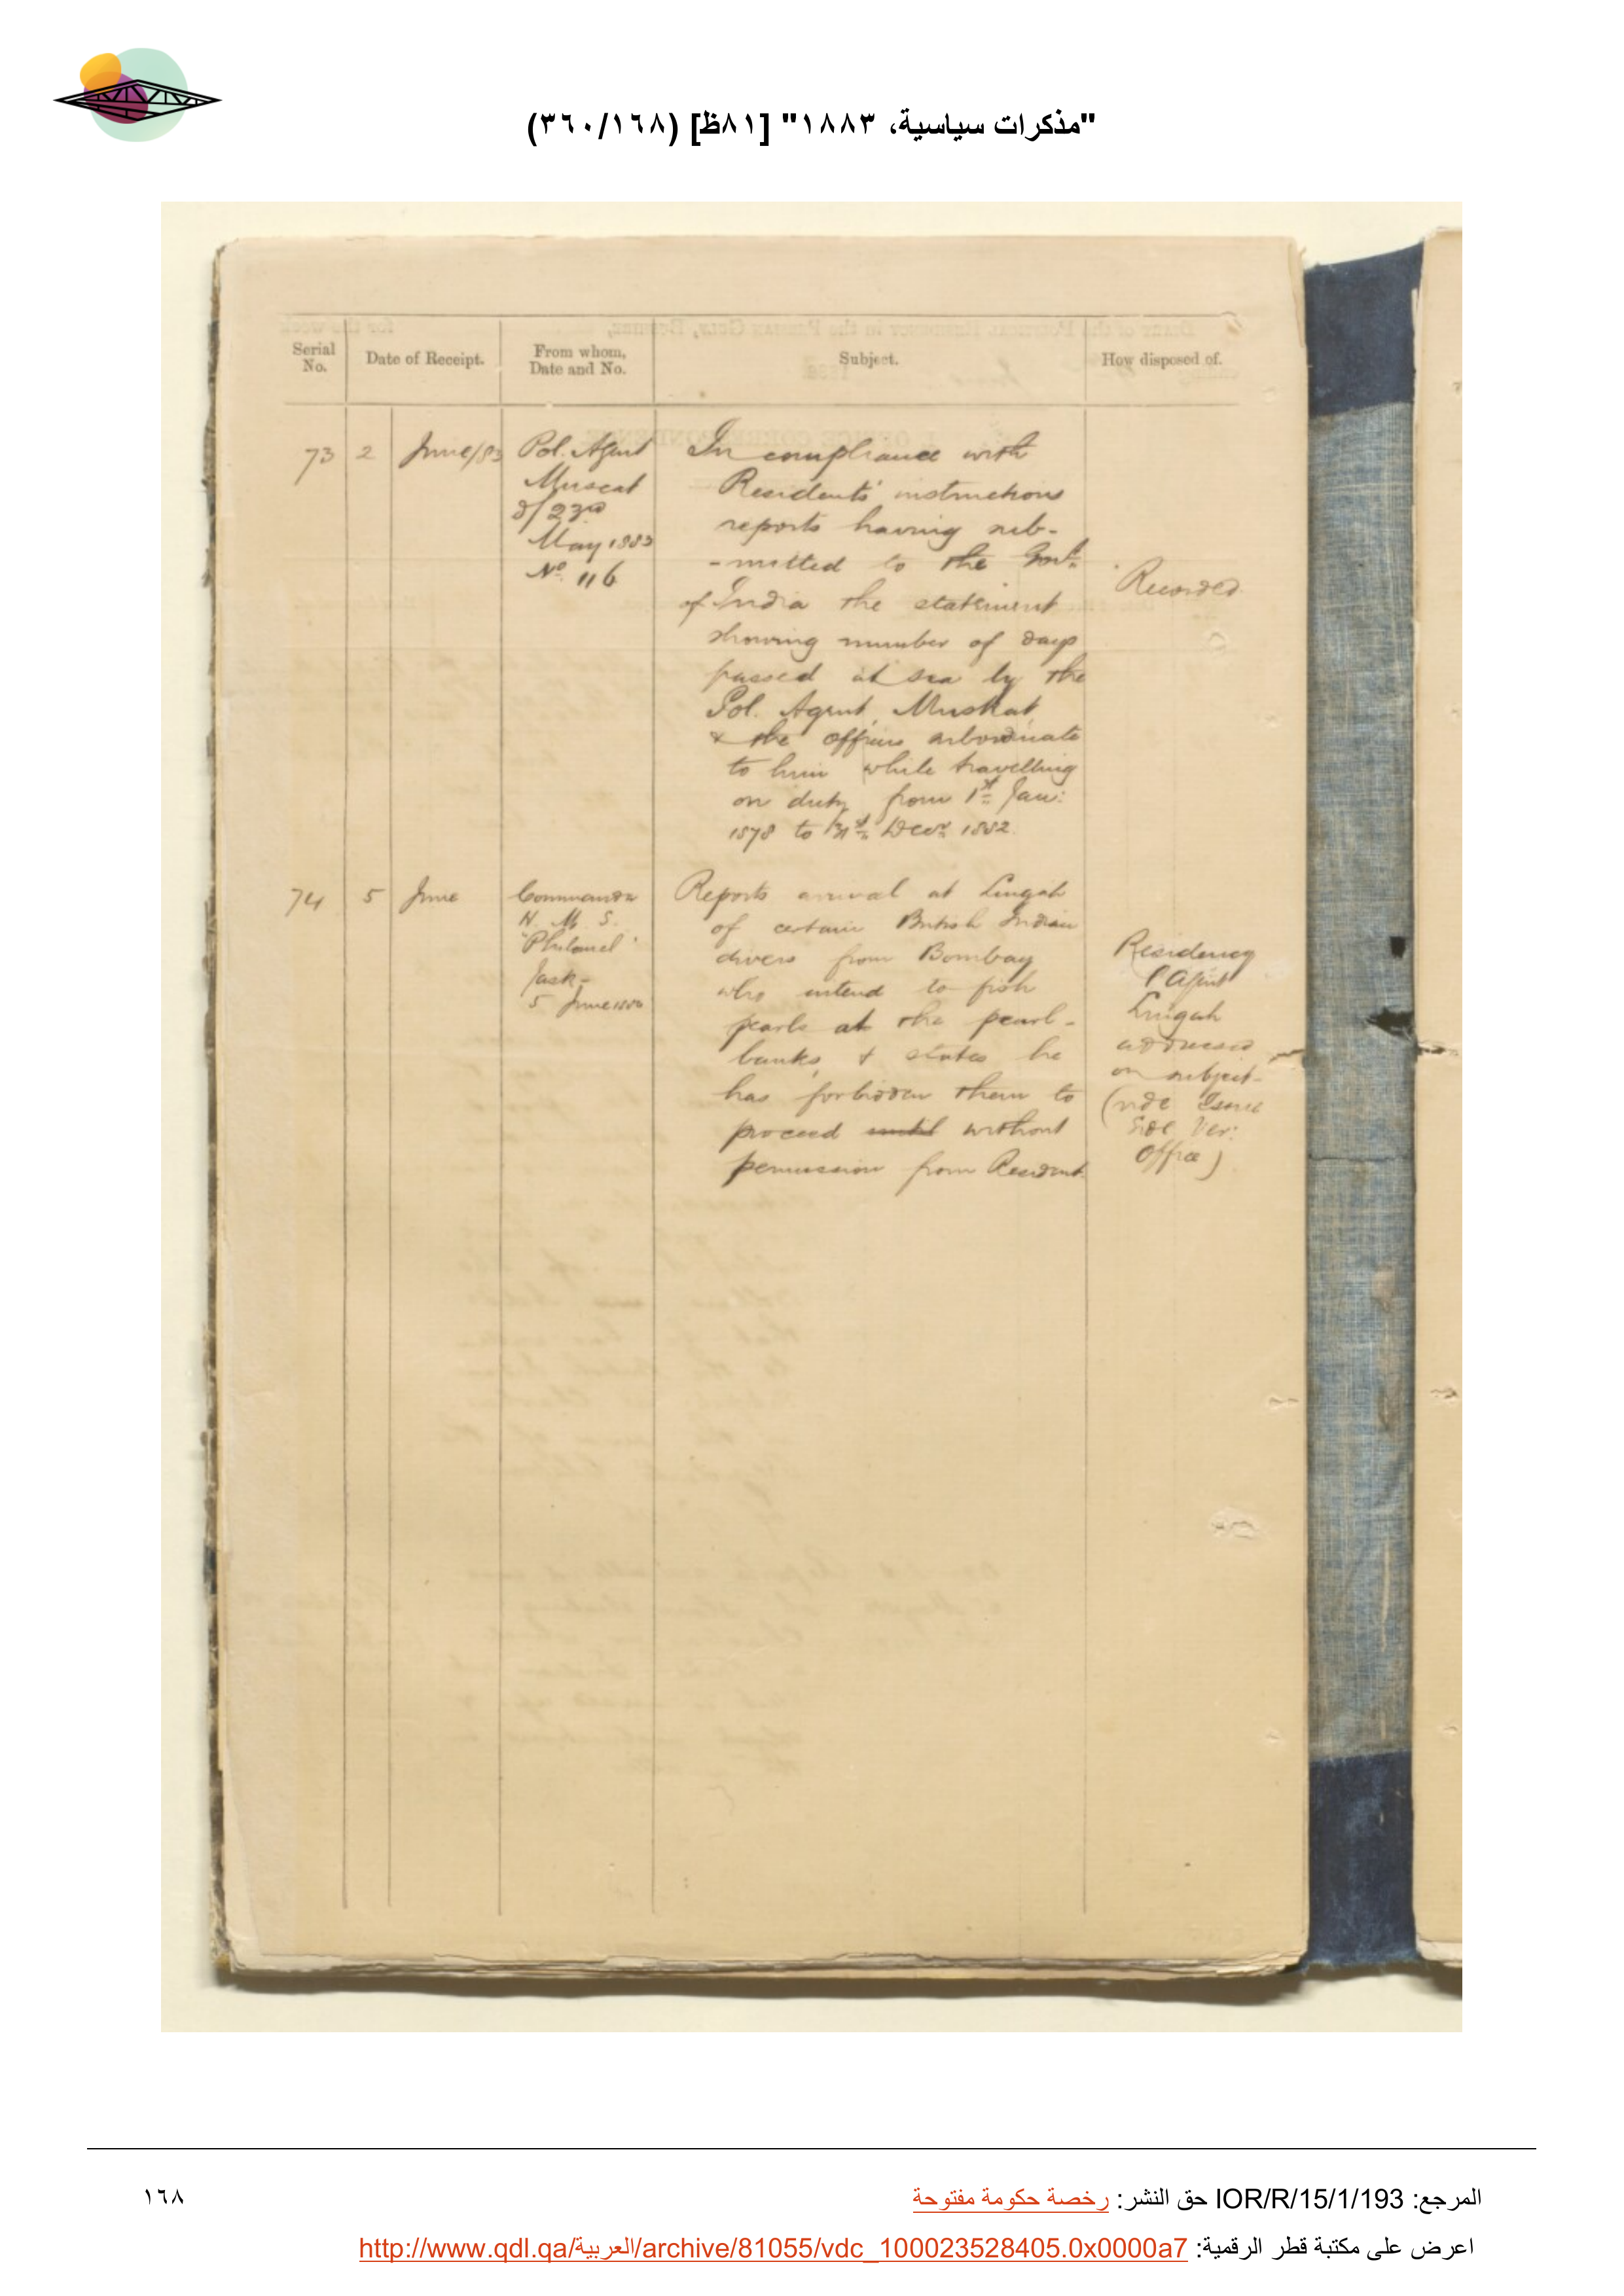 "مذكرات سياسية، ١٨٨٣" [٨١ظ] (٣٦٠/١٦٨)
Serial No.
Date of Receipt.
From whom, Date and No.
Subject.
How disposed of.
73
2
June/83
Pol. Agent
Muscat
d/23rd
May 1883
No. 116
In compliance with
Residents' instructions
reports having sub-
-mitted to the Govt.
of India the statement
showing number of days
passed at sea by the
Pol. Agent, Muskat,
& the officers subordinate
to him while travelling
on duty from 1st Jan:
1878 to 31st Decr. 1882.
Recorded
74
5
June
Commander
H. M. S.
"Philomel"
Jask-
5 June
Reports arrival at Lingah
of certain British Indian
divers from Bombay
who intend to fish
pearls at the pearl-
banks, & states he
has forbidden them to
proceed until without
permission from Resident.
Residency
Agent
Lingah
addressed
on subject-
(vide Issue
Side Ver:
Office)
المرجع: IOR/R/15/1/193 حق النشر: رخصة حكومة مفتوحة
١٦٨
اعرض على مكتبة قطر الرقمية: http://www.qdl.qa/العربية/archive/81055/vdc_100023528405.0x0000a7